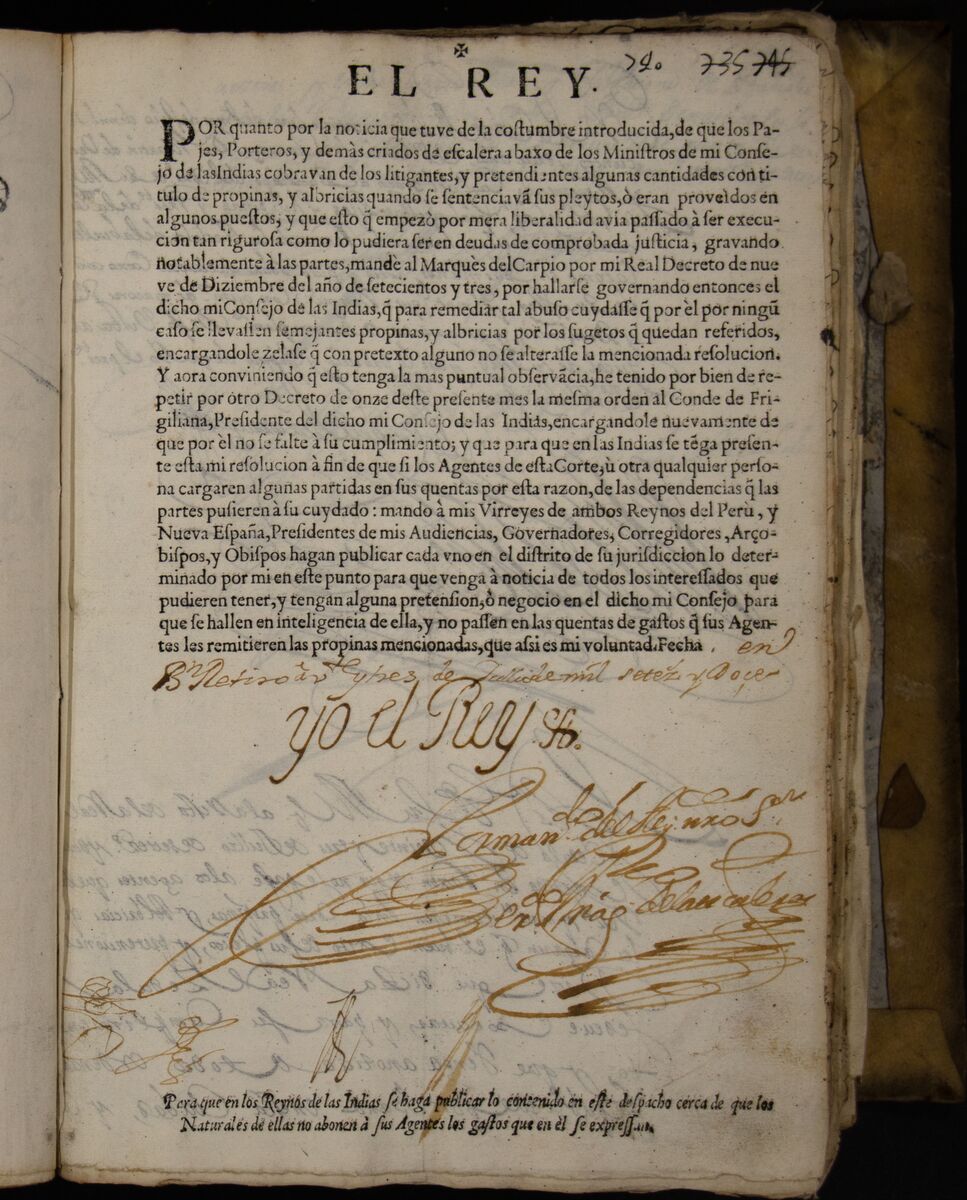 ✠
EL REY.
740 735 745
POR quanto por la noticia que tuve de la coſtumbre introducida, de que los Pa-
jes, Porteros, y demàs criados de eſcalera abaxo de los Miniſtros de mi Conſe-
jo de lasIndias cobravan de los litigantes, y pretendientes algunas cantidades con ti-
tulo de propinas, y albricias quando ſe ſentenciavã ſus pleytos, ò eran proveìdos en
algunos pueſtos, y que eſto q̃ empezò por mera liberalidad avia paſſado à ſer execu-
cion tan riguroſa como lo pudiera ſer en deudas de comprobada juſticia, gravando
notablemente à las partes, mandè al Marquès delCarpio por mi Real Decreto de nue
ve de Diziembre del año de ſetecientos y tres, por hallarſe governando entonces el
dicho miConſejo de las Indias, q̃ para remediar tal abuſo cuydaſſe q̃ por èl por ningũ
caſo ſe llevaſſen ſemejantes propinas, y albricias por los ſugetos q̃ quedan referidos,
encargandole zelaſe q̃ con pretexto alguno no ſe alteraſſe la mencionada reſolucion.
Y aora conviniendo q̃ eſto tenga la mas puntual obſervãcia, he tenido por bien de re-
petir por otro Decreto de onze deſte preſente mes la meſma orden al Conde de Fri-
giliana, Preſidente del dicho mi Conſejo de las Indias, encargandole nuevamente de
que por èl no ſe falte à ſu cumplimiento; y que para que en las Indias ſe tẽga preſen-
te eſta mi reſolucion à fin de que ſi los Agentes de eſtaCorte, ù otra qualquier perſo-
na cargaren algunas partidas en ſus quentas por eſta razon, de las dependencias q̃ las
partes puſieren à ſu cuydado: mando à mis Virreyes de ambos Reynos del Perù, y
Nueva Eſpaña, Preſidentes de mis Audiencias, Governadores, Corregidores, Arço-
biſpos, y Obiſpos hagan publicar cada vno en el diſtrito de ſu juriſdiccion lo deter-
minado por mi en eſte punto para que venga à noticia de todos los intereſſados que
pudieren tener, y tengan alguna pretenſion, ò negocio en el dicho mi Conſejo para
que ſe hallen en inteligencia de ella, y no paſſen en las quentas de gaſtos q̃ ſus Agen-
tes les remitieren las propinas mencionadas, que aſsi es mi voluntad. Fecha en
Bn Retiro à vte y tres de Julio de mil setezs y Doçe
yo el Rey
Por mando del Rey nro Sr
Para que en los Reynos de las Indias ſe haga publicar lo contenido en eſte deſpacho cerca de que los
Naturales de ellas no abonen à ſus Agentes los gaſtos que en èl ſe expreſſan.